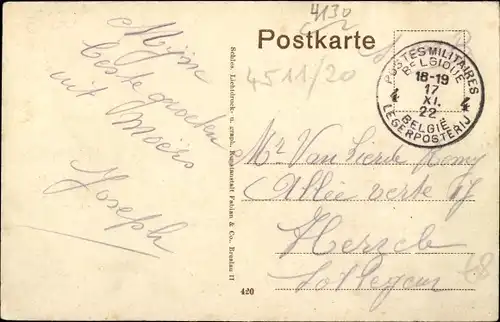 4130
Postkarte
4511/20
POSTES MILITAIRES
BELGIQUE
18-19
17
XI.
22
4 4
BELGIË
LEGERPOSTERIJ
Mijn
beste groeten
uit Moers
Joseph
Schles. Lichtdruck- u. graph. Kunstanstalt Fabian & Co., Breslau II
420
Mr Van Lierde Remy
Allée verte
Herzele
Sottegem